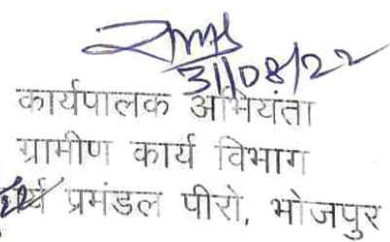 31/08/22
कार्यपालक अभियंता
ग्रामीण कार्य विभाग
कार्य प्रमंडल पीरो, भोजपुर